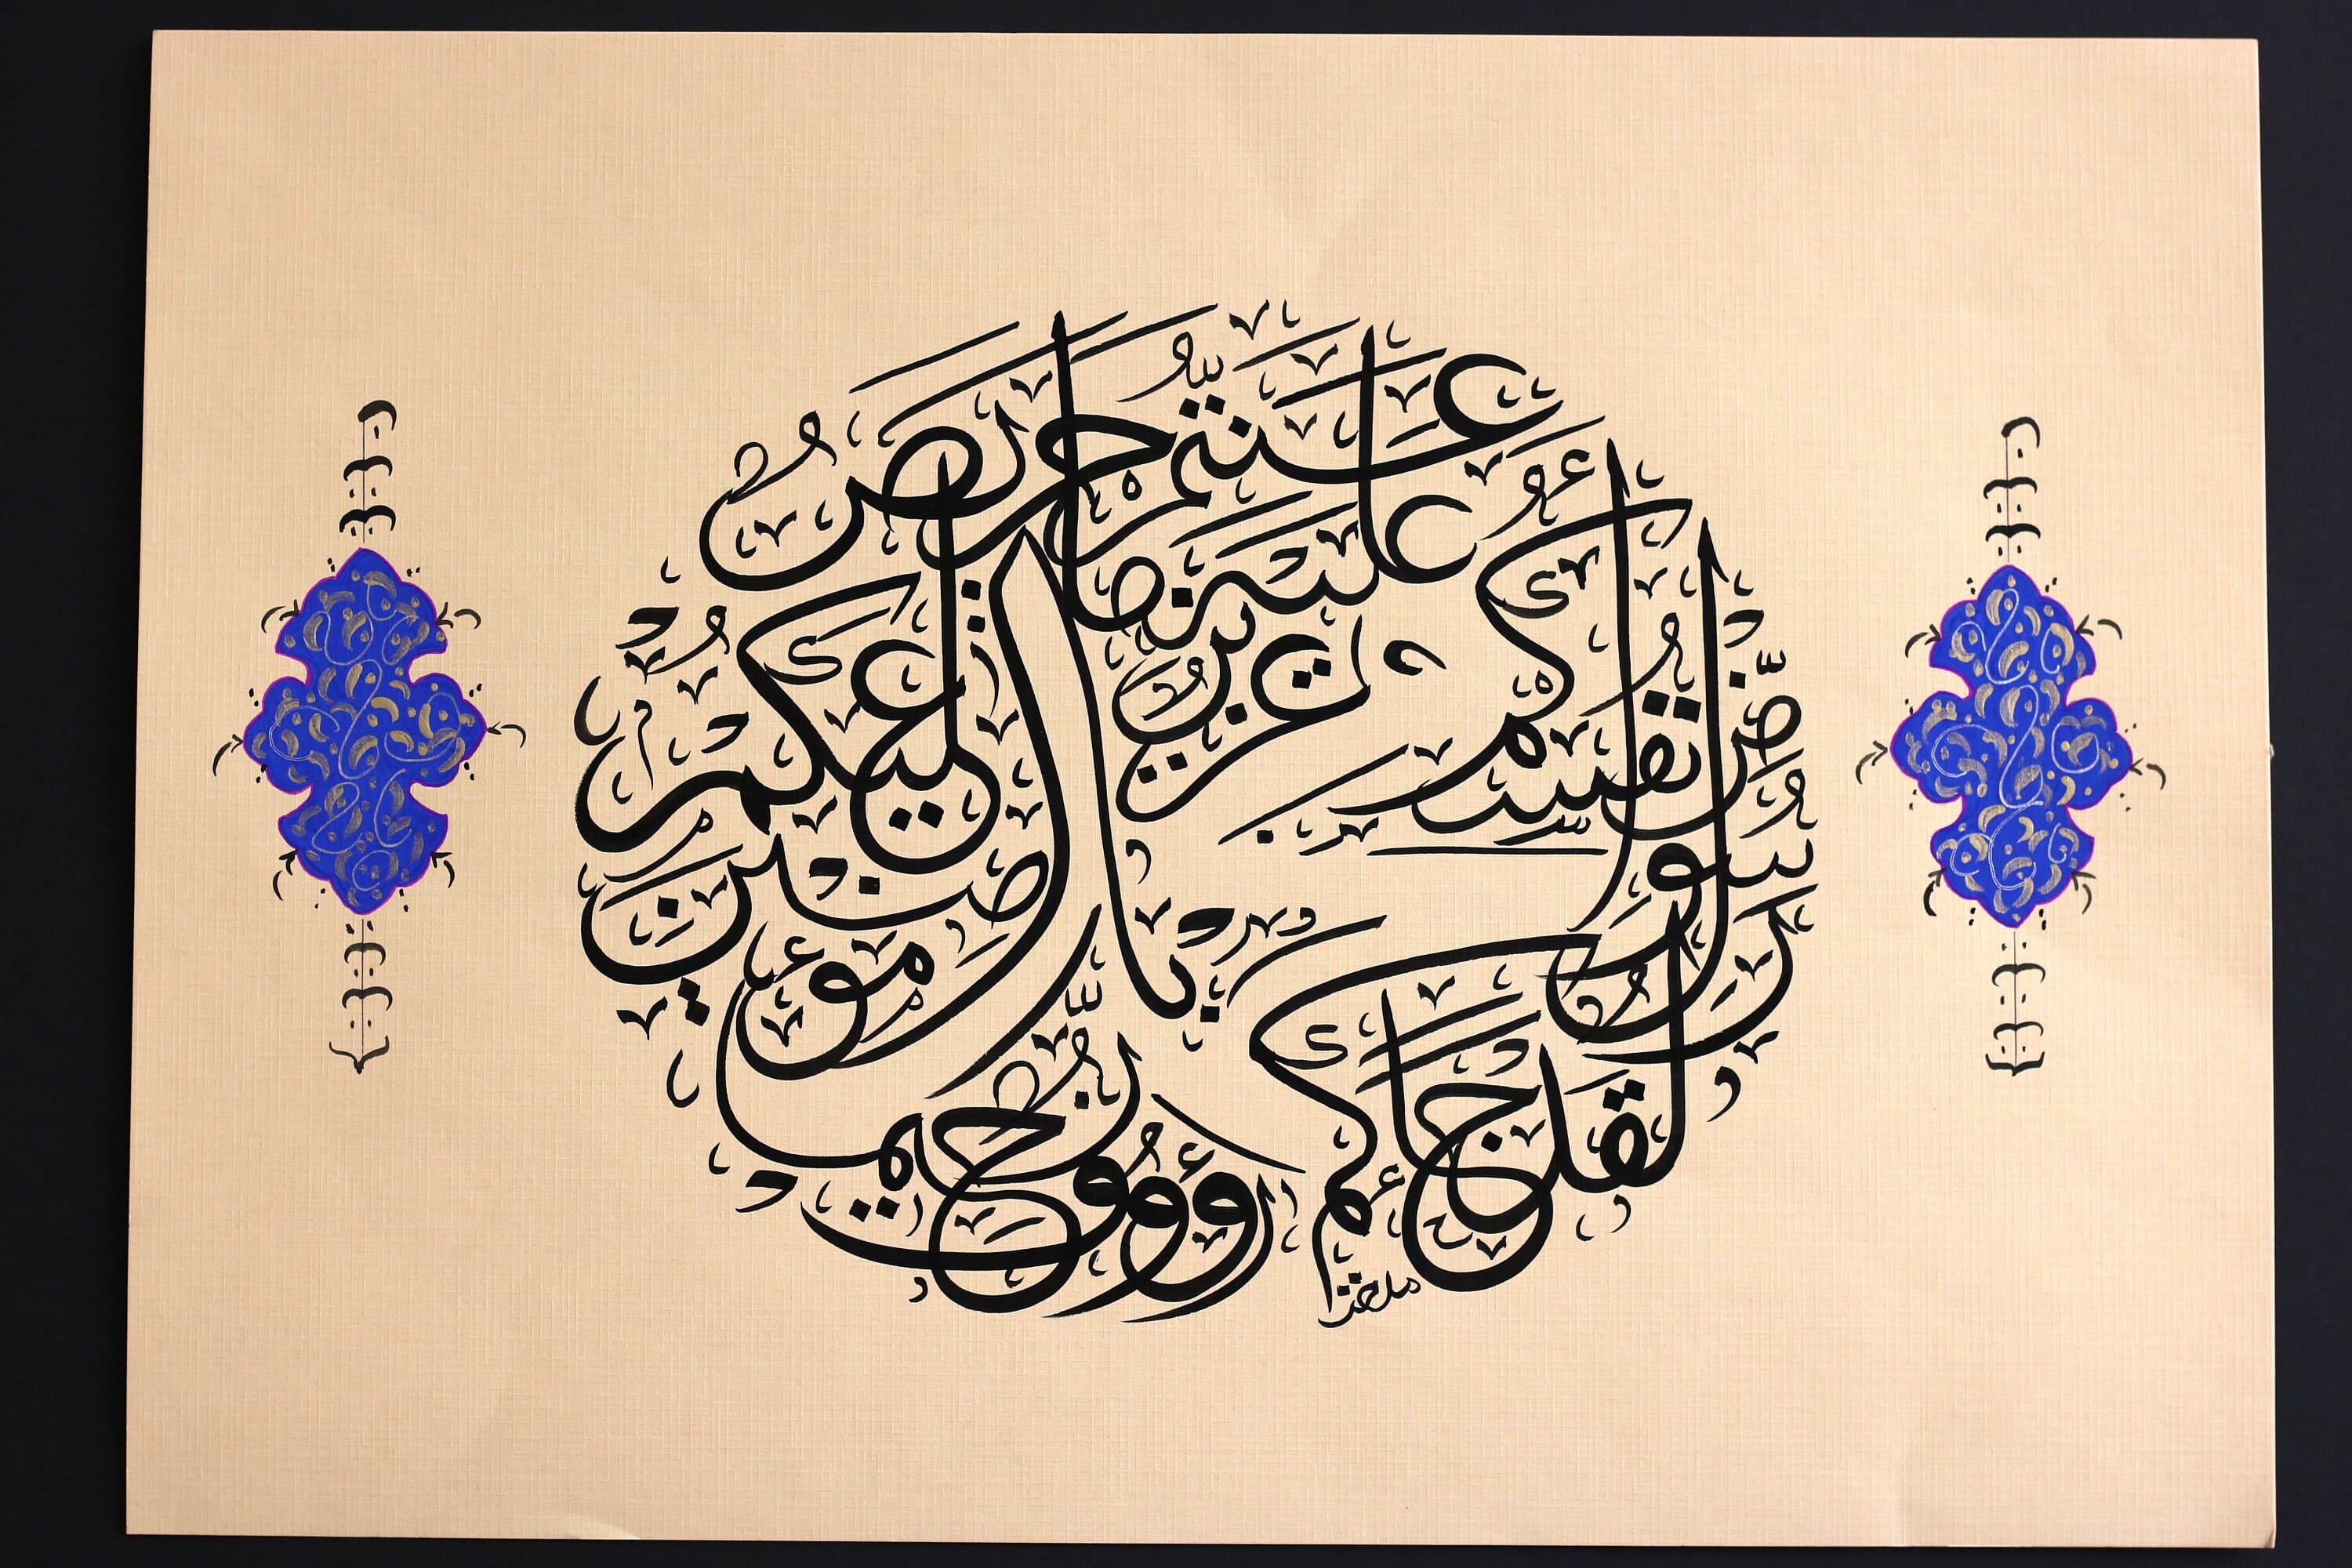 لقد جاءكم رسول من أنفسكم عزيز عليه ما عنتم حريص عليكم بالمؤمنين رؤوف رحيم